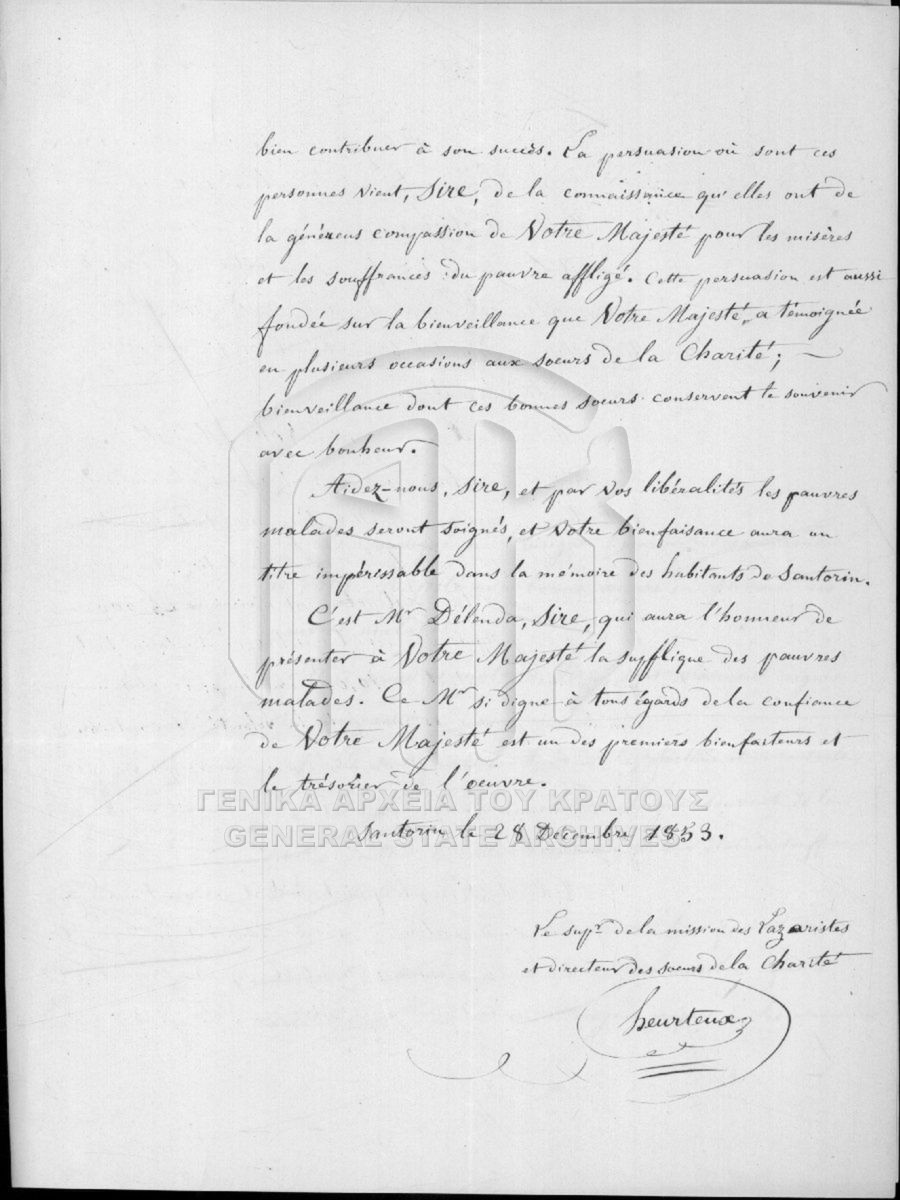 bien contribuer à son succès. La persuasion où sont ces
personnes vient, Sire, de la connaissance qu'elles ont de
la généreus compassion de Votre Majesté pour les misères
et les souffrances du pauvre affligé. Cette persuasion est aussi
fondée sur la bienveillance que Votre Majesté, a témoignée
en plusieurs occasions aux soeurs de la Charité; —
bienveillance dont ces bonnes soeurs conservent le souvenir
avec bonheur.
Aidez-nous, Sire, et par vos libéralités les pauvres
malades seront soignés, et votre bienfaisance aura un
titre impérissable dans la mémoire des habitants de Santorin.
C'est Mr Délenda, Sire, qui aura l'honneur de
présenter à Votre Majesté la supplique des pauvres
malades. Ce Mr si digne à tous égards de la confiance
de Votre Majesté est un des premiers bienfaiteurs et
le trésorier de l'oeuvre.
ΓΕΝΙΚΑ ΑΡΧΕΙΑ ΤΟΥ ΚΡΑΤΟΥΣ
GENERAL STATE ARCHIVES
Santorin le 28 Decembre 1853.
Le supr de la mission des Lazaristes
et directeur des soeurs de la Charité
heurteux